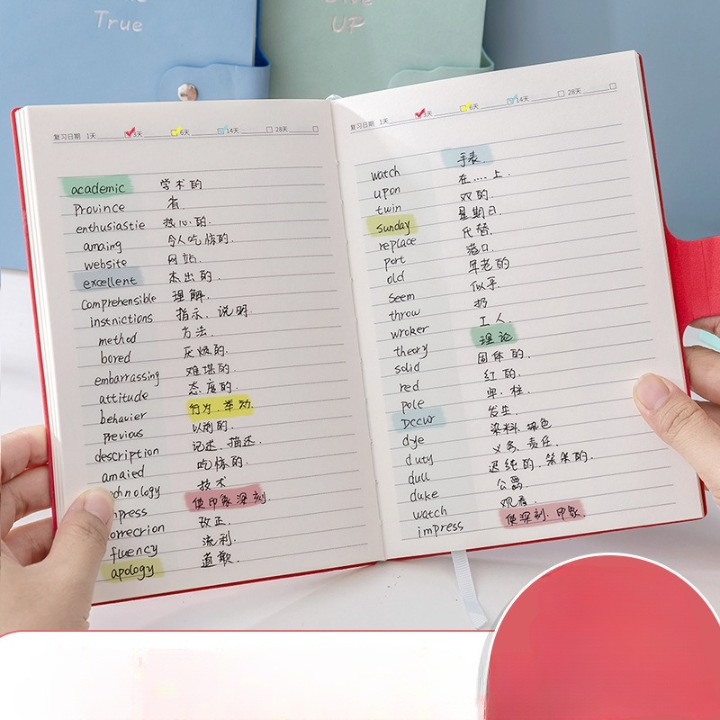 True
UP
复习日期 1天 3天 6天 14天 28天
academic 学术的
Province 省
enthusiastie 热心的.
amaing 令人吃惊的.
website 网站.
excellent 杰出的.
comprehensible 理解.
instnictions 指示、说明
method 方法.
bored 厌烦的.
embarrassing 难堪的.
attitude 态度的.
behavier 行为、举动.
Previous 以前的.
description 记述、描述.
amaied 吃惊的.
chnology 技术
mpress 使印象深刻.
orrecrion 改正.
fluency 流利.
apology 道歉.
复习日期 1天 3天 6天 14天 28天
watch 手表.
upon 在....上.
twin 双的.
Sunday 星期日.
replace 代替.
port 港口.
old 年老的
seem 似乎.
throw 扔
wroker 工人.
theory 理论
solid 固体的.
red 红的.
pole 杆.柱.
Dccur 发生.
dye 染料.染色
duty 义务.责任.
dull 迟钝的.笨笨的.
duke 公爵
watch 观看.
impress 使深刻.印象.